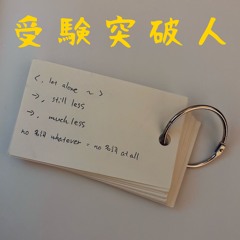 受験突破人
<, let alone ~ >
→, still less
→, much less
no 名詞 whatever = no 名詞 at all